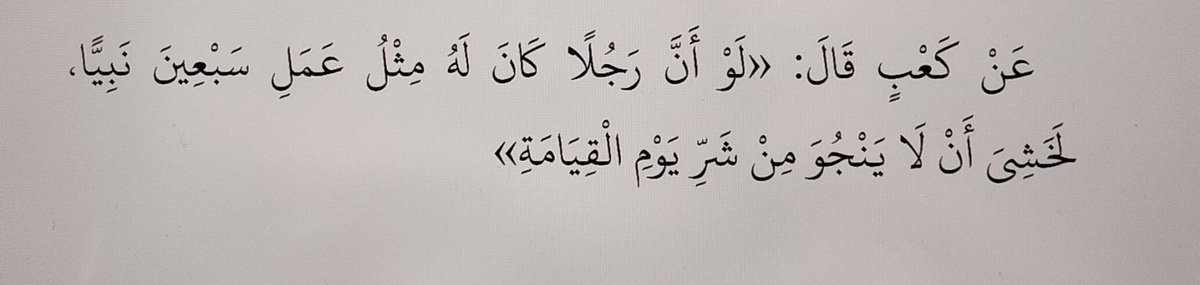 عَنْ كَعْبٍ قَالَ: «لَوْ أَنَّ رَجُلًا كَانَ لَهُ مِثْلُ عَمَلِ سَبْعِينَ نَبِيًّا،
لَخَشِيَ أَنْ لَا يَنْجُوَ مِنْ شَرِّ يَوْمِ الْقِيَامَةِ»